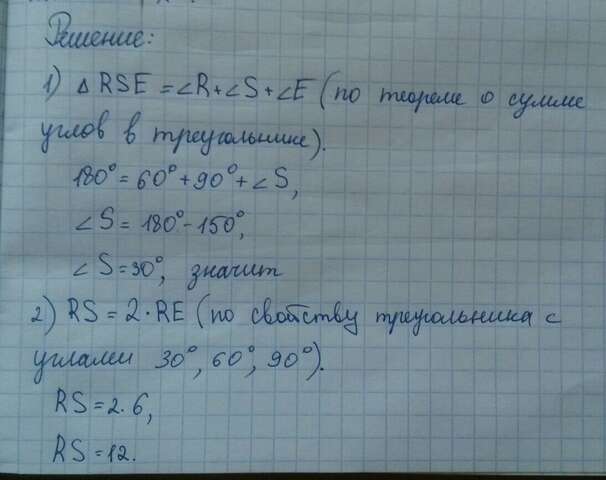 Решение:
1) △ RSE = ∠R+∠S+∠E (по теореме о сумме
углов в треугольнике).
180° = 60° + 90° + ∠S,
∠S = 180° - 150°,
∠S = 30°, значит
2) RS = 2 · RE (по свойству треугольника с
углами 30°, 60°, 90°).
RS = 2 · 6,
RS = 12.